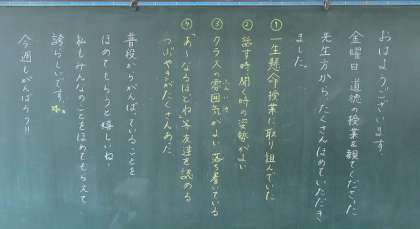 おはようございます。
金曜日、道徳の授業を観てくださった
先生方から、たくさんほめていただき
ました。
① 一生懸命授業に取り組んでいた
② 話す時聞く時の姿勢がよい
③ クラスの雰囲気がよい 落ち着いている
ふんいき
④ 「あーなるほどね」等友達を認める
つぶやきがたくさんあった
普段からがんばっていることを
ほめてもらうと嬉しいね。
私もみんなのことをほめてもらえて、
誇らしいです。
今週もがんばろう!!